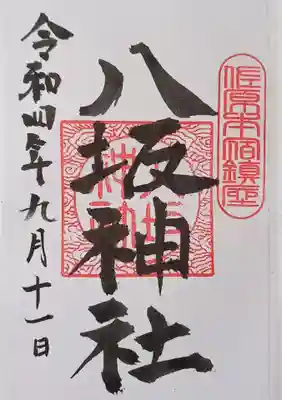 佐原本宿鎮座
八坂神社
令和四年九月十一日